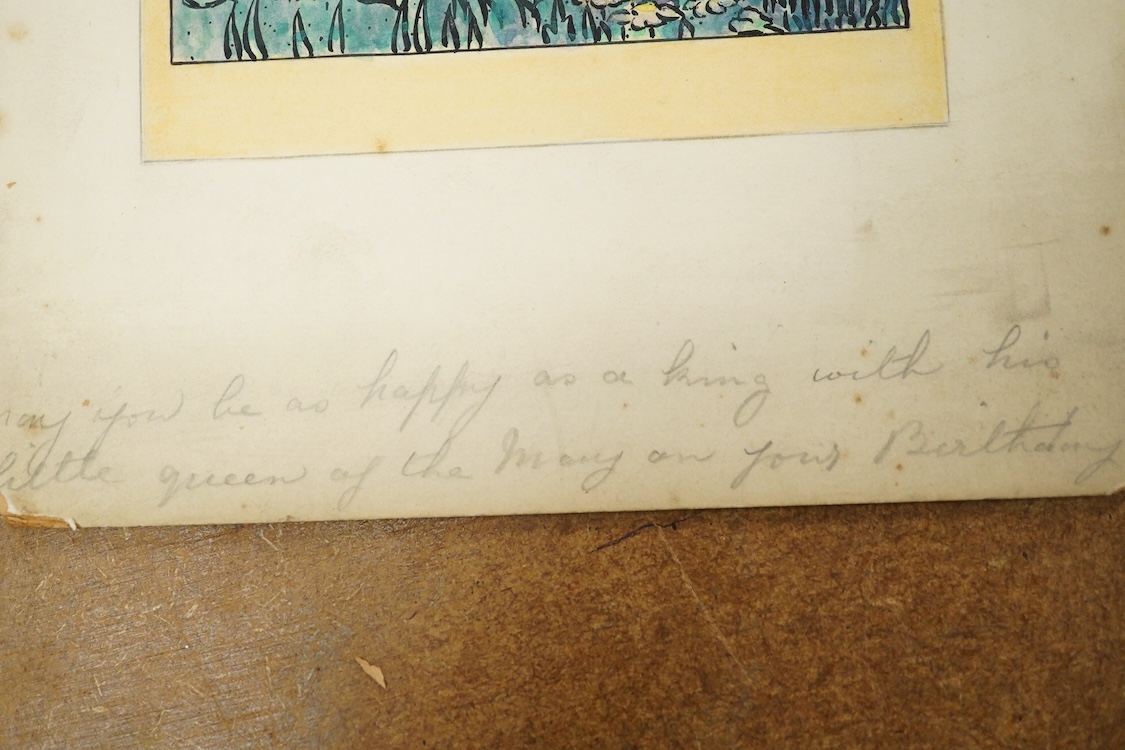 may you be as happy as a king with his
little queen of the May on your Birthday